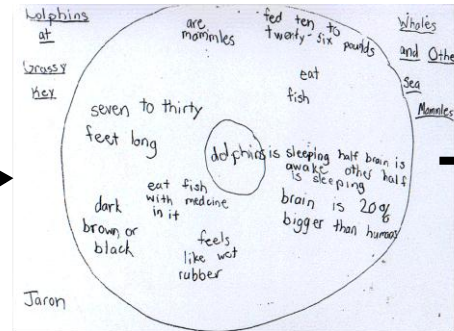 Dolphins
at
Grassy
Key
are
mammles
fed ten to
twenty-six pounds
Whales
and Other
sea
Mammles
eat
fish
seven to thirty
feet long
dolphins
is sleeping half brain is
awake other half
is sleeping
eat fish
with medcine
in it
brain is 20%
bigger than humans
dark
brown or
black
feels
like wet
rubber
Jaron